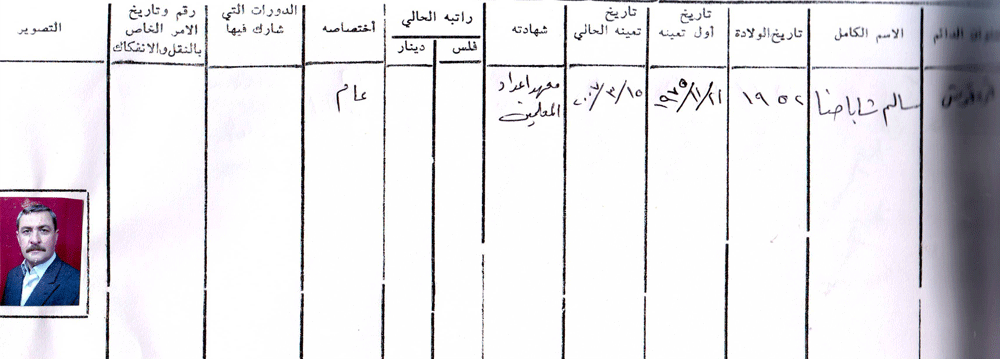 الدائم
الاسم الكامل
تاريخ الولادة
تاريخ
أول تعينه
تاريخ
تعينه الحالي
شهادته
راتبه الحالي
فلس
دينار
أختصاصه
الدورات التي
شارك فيها
رقم وتاريخ
الامر الخاص
بالنقل والانفكاك
التصوير
سالم شابا حنا
١٩٥٢
١٩٧٥/١١/٢١
٢٠٠٧/٣/١٥
معهد اعداد
المعلمين
عام